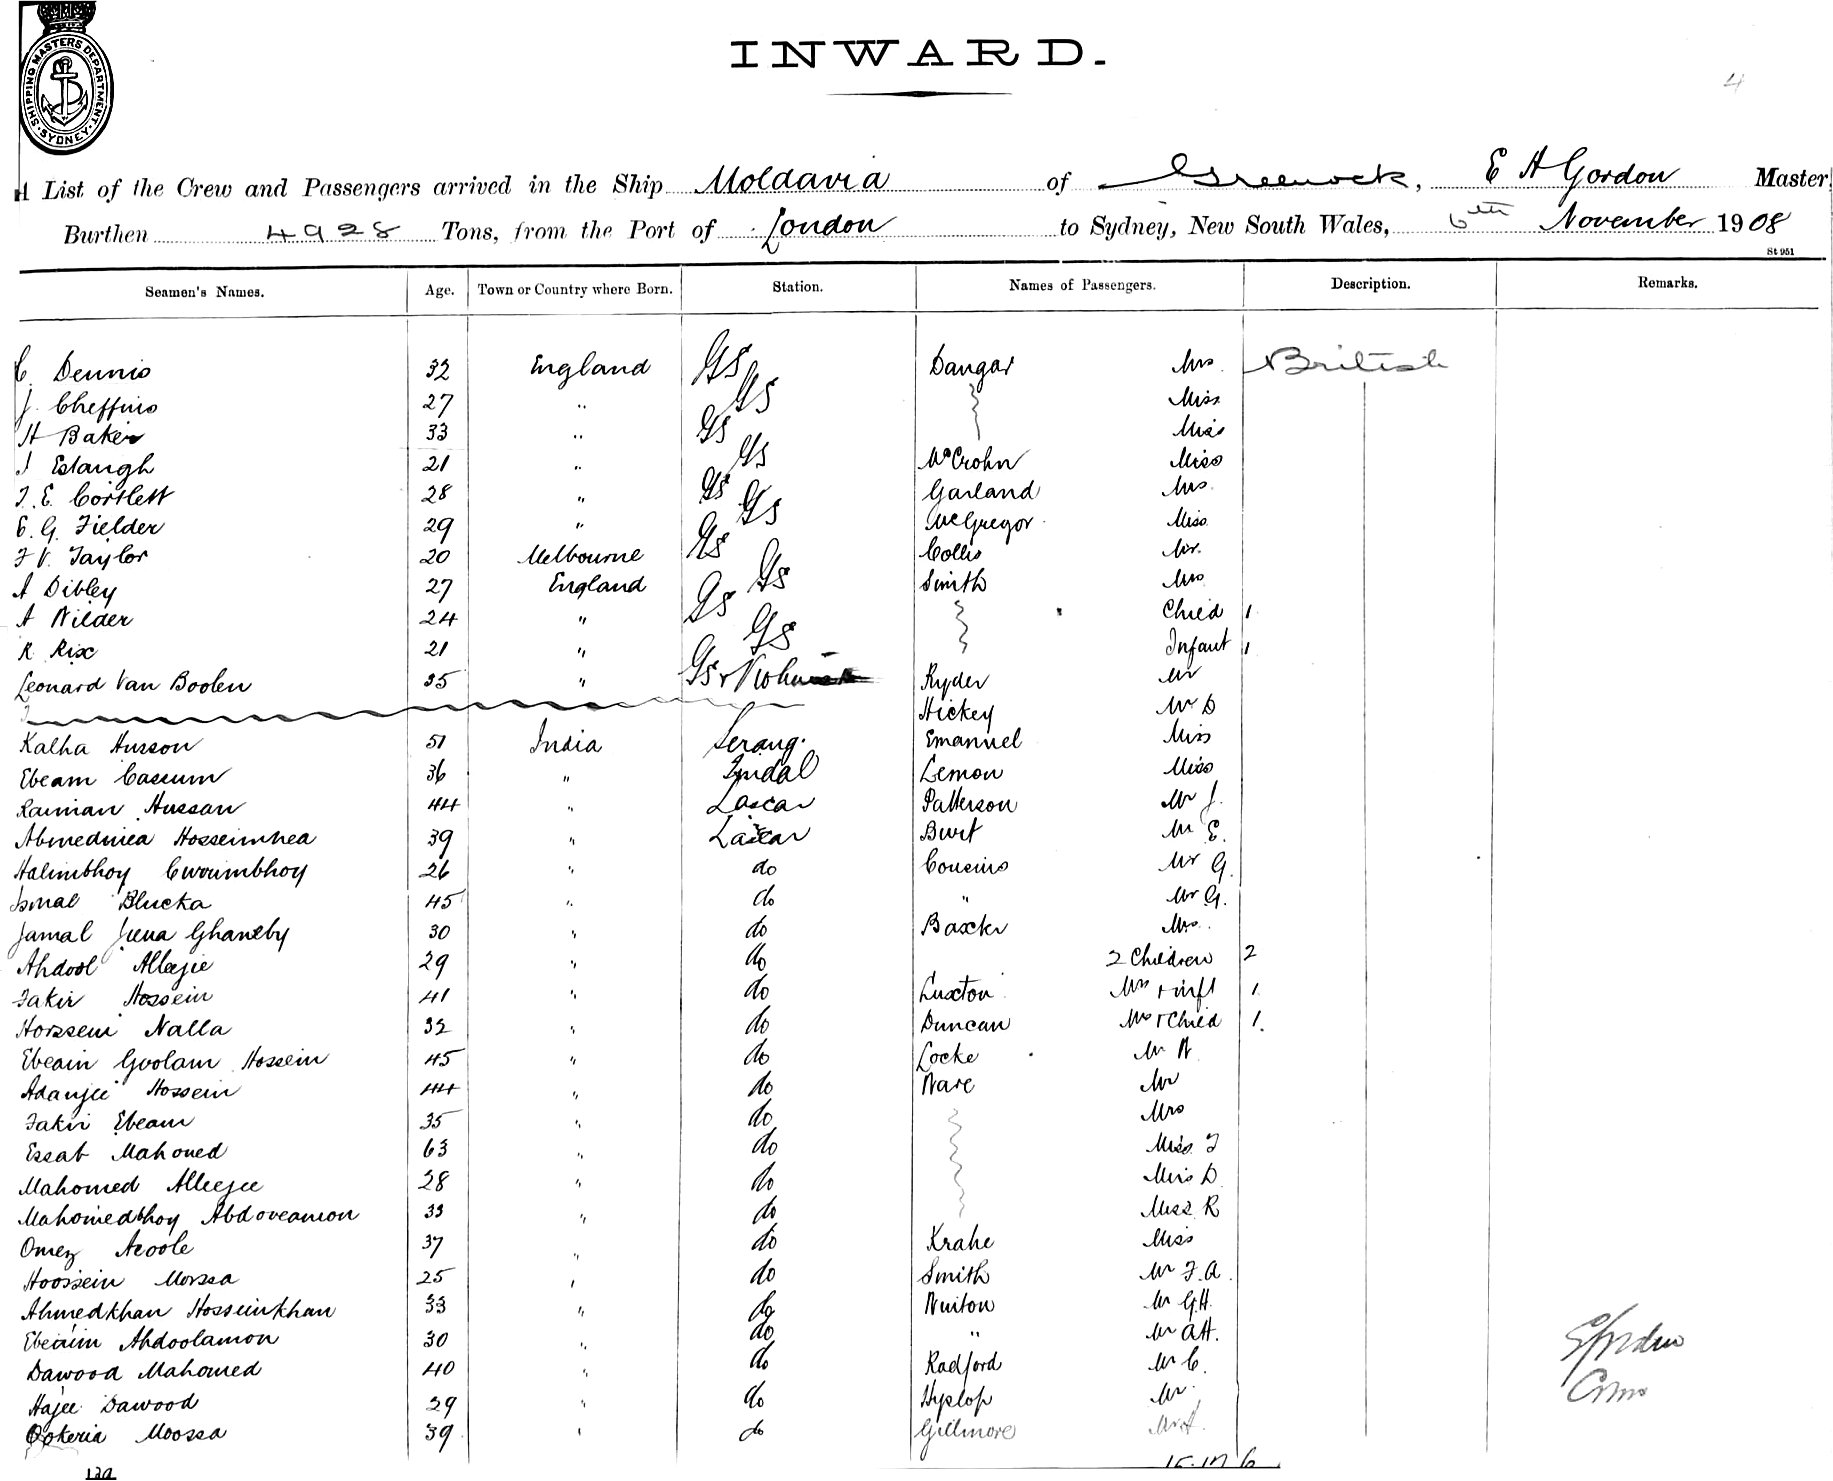 SHIPPING MASTERS DEPARTMENT. SYDNEY
INWARD.
4
A List of the Crew and Passengers arrived in the Ship Moldavia of Greenock, E A Gordon Master
Burthen 4928 Tons, from the Port of London to Sydney, New South Wales, 6th November 1908
St 951
Seamen's Names. Age. Town or Country where Born. Station. Names of Passengers. Description. Remarks.
C. Dennis 32 England GS Dangar Mrs British
J. Cheffins 27 " GS Miss
H Baker 33 " GS Miss
Eslaugh 21 " GS McCrohn Miss
F. E. Cortlett 28 " GS Garland Mrs.
E. G. Fielder 29 " GS McGregor Miss
F V. Taylor 20 Melbourne GS Collis Mr.
A Dibley 27 England GS Smith Mrs
A Wilder 24 " GS Child 1
R. Rix 21 " GS Infant 1
Leonard Van Boolen 35 " GS Ryder Mr
Hickey Mr D
Kalha Husson 51 India Serang. Emanuel Miss
Ebeam Cassum 36 " Tindal Lemon Miss
Raiman Hussan 44 " Lascar Patterson Mr J.
Ahmedmea Hosseinmea 39 " Lascar Burt Mr E.
Halimbhoy 26 " do Cousins Mr G.
Ismal Blucka 45 " do " Mr G.
Jamal Juna Ghaneby 30 " do Baxter Mrs.
Ahdool Alleejie 29 " do 2 Children 2
Fakir Hossein 41 " do Luxton Mrs + inft 1
Horssein Nalla 32 " do Duncan Mrs + Child 1.
Ebeain Goolam Hossein 45 " do Locke Mr W
Adanjee Hossein 44 " do Ware Mr
Fakir Ebeam 35 " do Mrs
Essab Mahomed 63 " do Miss F
Mahomed Alleejee 28 " do Miss D
Mahomedbhoy Abdoveamon 33 " do Miss R
Omez Acoole 37 " do Krahe Miss
Hoossein Morssa 25 " do Smith Mr F.A.
Ahmedkhan Hosseinkhan 33 " do Nuiton Mr G.H.
Ebeaim Ahdoolamon 30 " do " Mr A.H.
Dawood Mahomed 40 " do Radford Mr C.
Hajee Dawood 29 " do Hyslop Mr.
Ookeria Moossa 39 " do Gillmore Mr A.